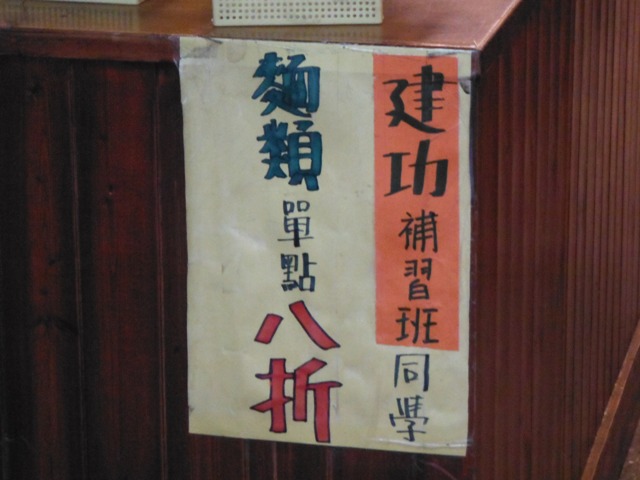 建功補習班同學
麵類單點八折